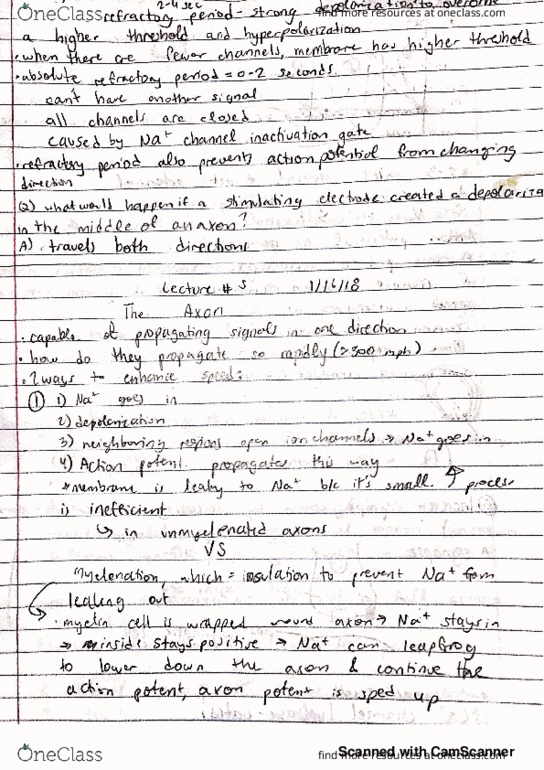 OneClass
find more resources at oneclass.com
2-4 sec
refractory period - strong depolarization to overcome
a higher threshold and hyperpolarization
· when there are fewer channels, membrane has higher threshold
· absolute refractory period = 0-2 seconds
can't have another signal
all channels are closed
caused by Na+ channel inactivation gate
· refractory period also prevents action potential from changing
direction
Q) what would happen if a stimulating electrode created a depolariza
in the middle of an axon?
A) travels both directions
Lecture # 5 1/16/18
The Axon
· capable of propagating signals in one direction
· how do they propagate so rapidly (>300 mph)
· 2 ways to enhance speed:
① 1) Na+ goes in
2) depolarization
3) neighboring regions open ion channels → Na+ goes in
4) Action potent. propagates this way
*membrane is leaky to Na+ b/c it's small. process
is inefficient
↳ in unmyelenated axons
VS
Myelenation, which = insulation to prevent Na+ from
leaking out
· myelin cell is wrapped round axon → Na+ stays in
→ inside stays positive → Na+ can leapfrog
to lower down the axon & continue the
action potent, axon potent is sped up
OneClass
find more resources at oneclass.com
Scanned with CamScanner